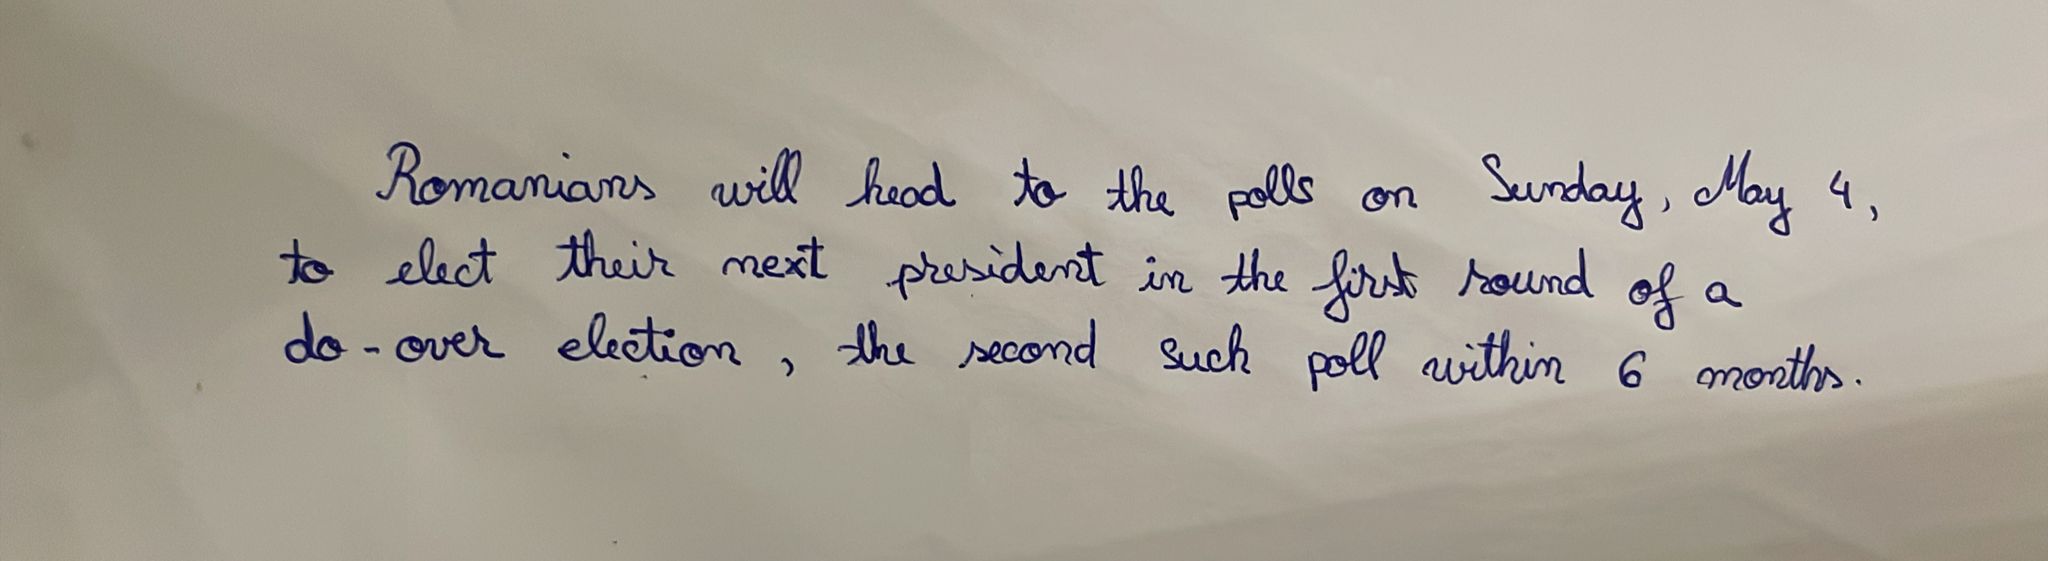 Romanians will head to the polls on Sunday, May 4,
to elect their next president in the first round of a
do-over election, the second such poll within 6 months.